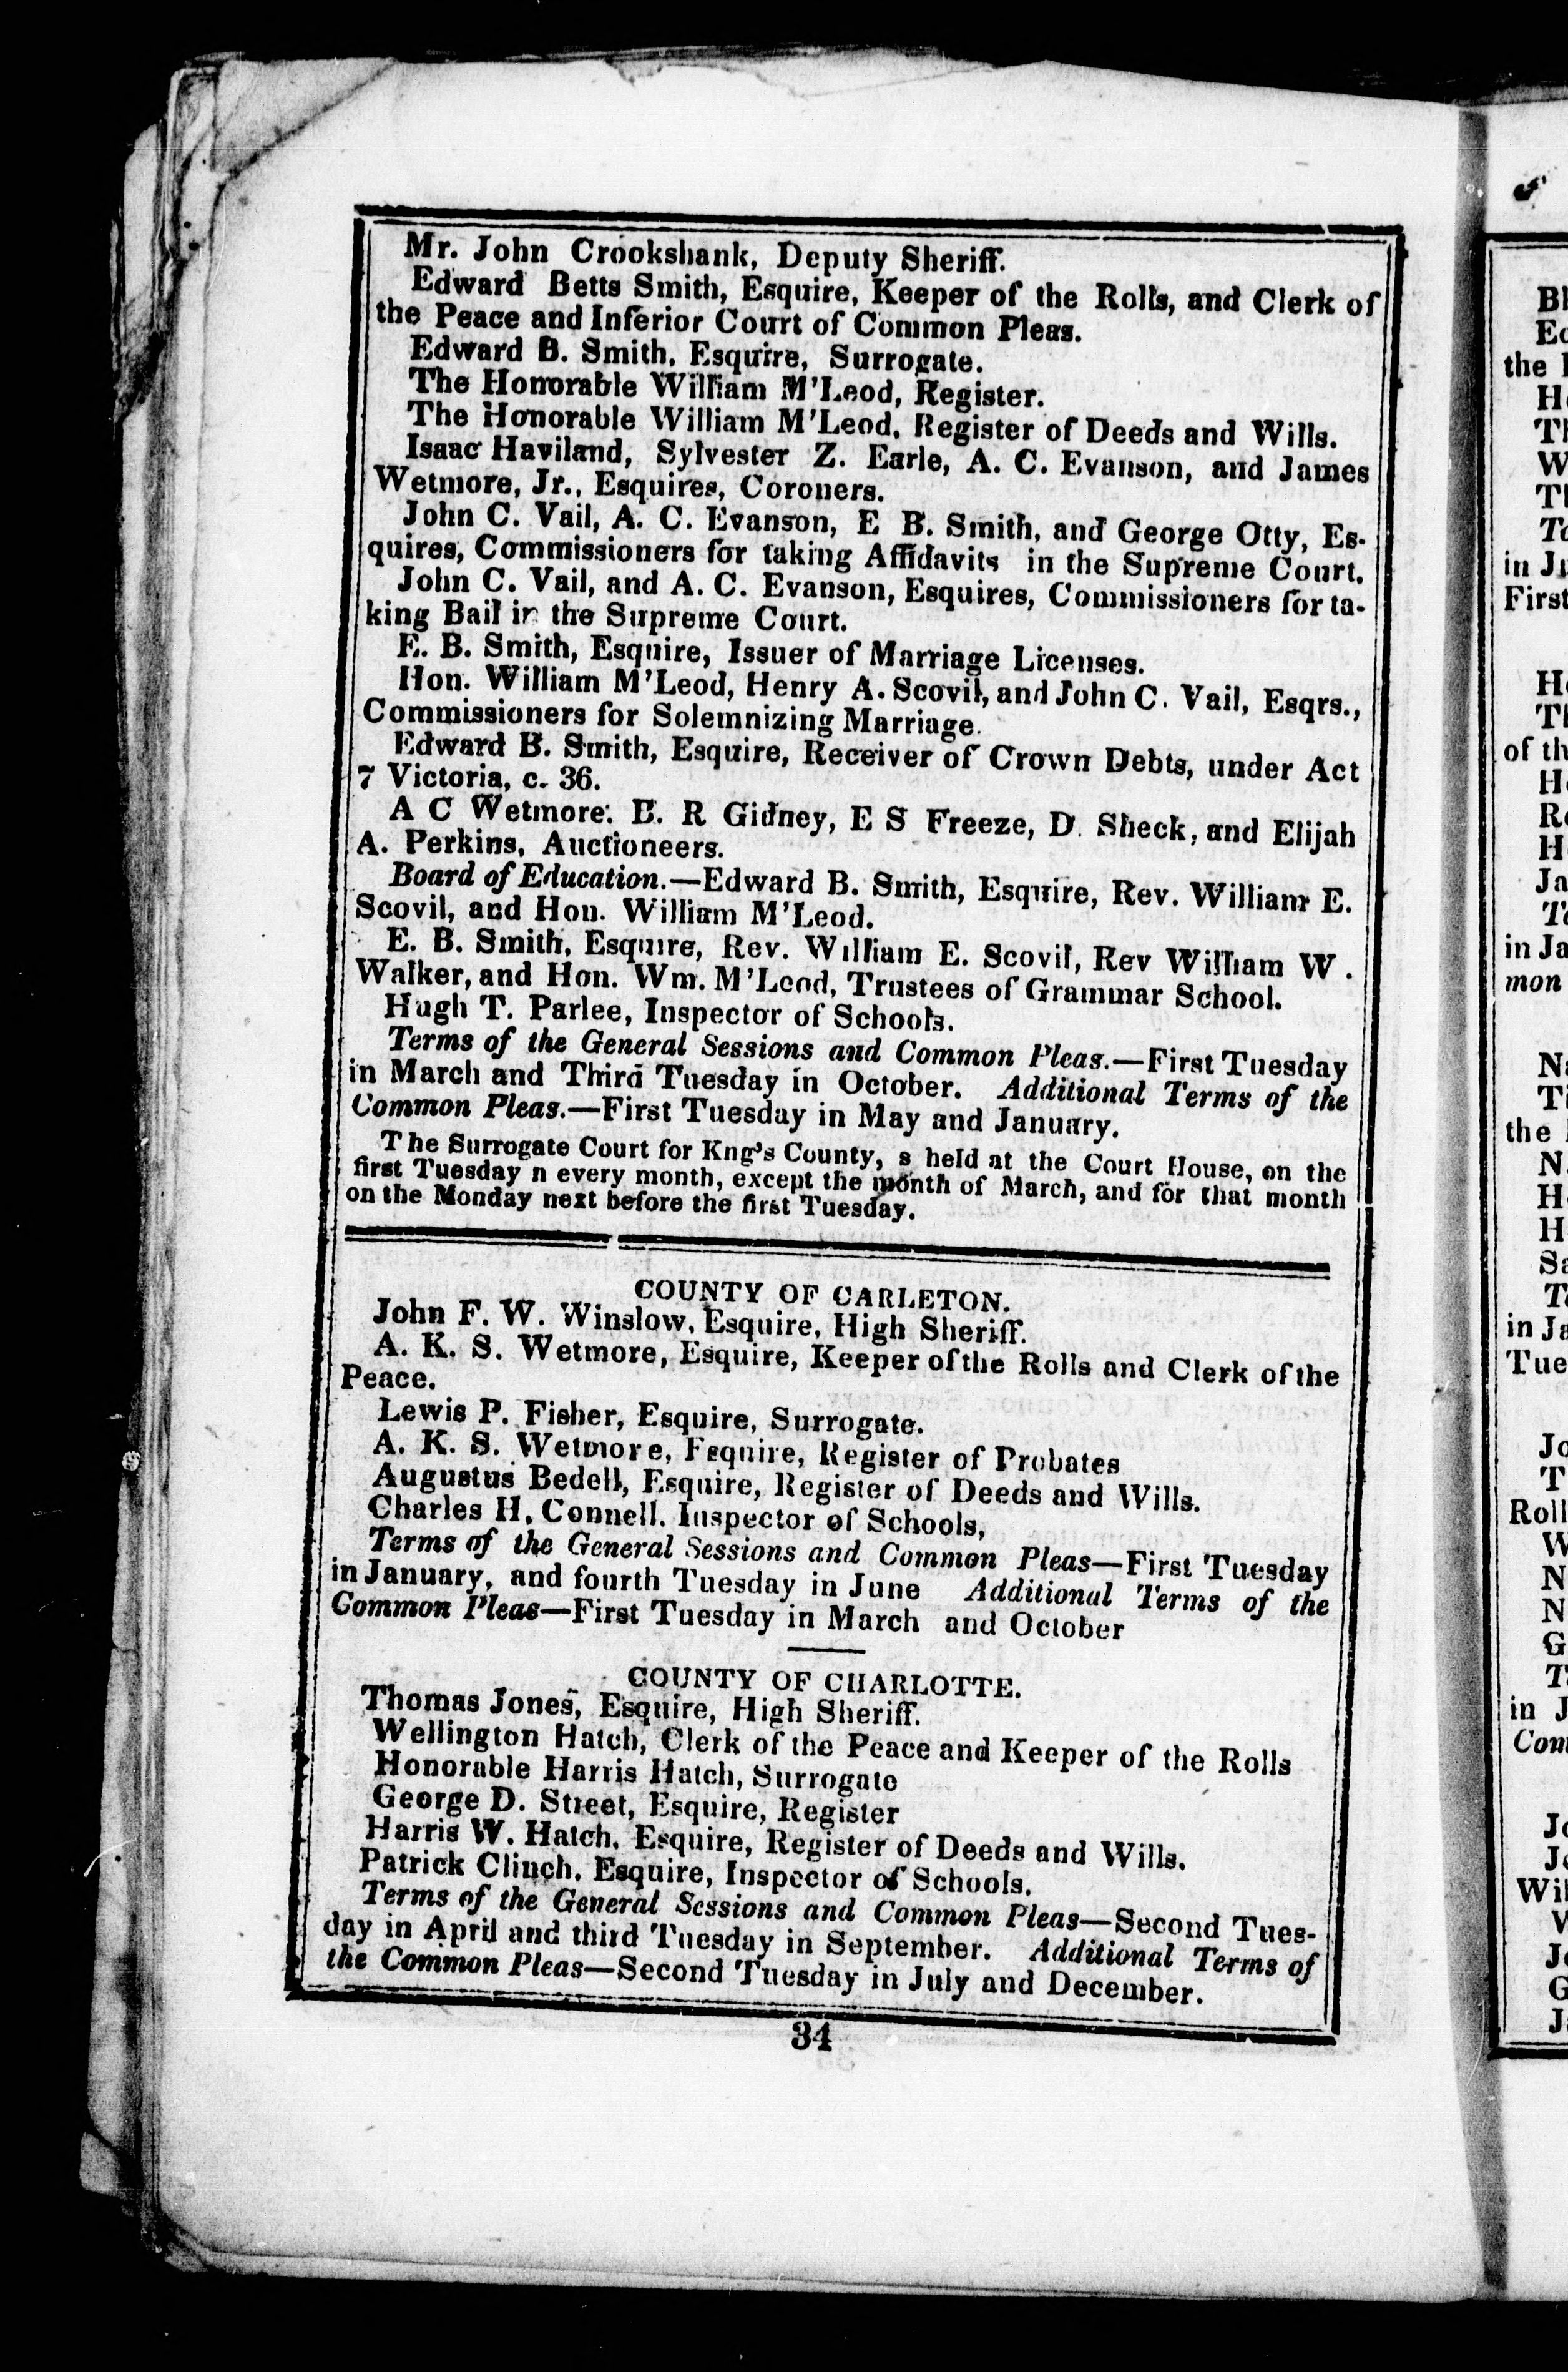 Mr. John Crookshank, Deputy Sheriff.
Edward Betts Smith, Esquire, Keeper of the Rolls, and Clerk of
the Peace and Inferior Court of Common Pleas.
Edward B. Smith, Esquire, Surrogate.
The Honorable William M'Leod, Register.
The Honorable William M'Leod, Register of Deeds and Wills.
Isaac Haviland, Sylvester Z. Earle, A. C. Evanson, and James
Wetmore, Jr., Esquires, Coroners.
John C. Vail, A. C. Evanson, E B. Smith, and George Otty, Es-
quires, Commissioners for taking Affidavits in the Supreme Court.
John C. Vail, and A. C. Evanson, Esquires, Commissioners for ta-
king Bail in the Supreme Court.
E. B. Smith, Esquire, Issuer of Marriage Licenses.
Hon. William M'Leod, Henry A. Scovil, and John C. Vail, Esqrs.,
Commissioners for Solemnizing Marriage.
Edward B. Smith, Esquire, Receiver of Crown Debts, under Act
7 Victoria, c. 36.
A C Wetmore. B. R Gidney, E S Freeze, D. Sheck, and Elijah
A. Perkins, Auctioneers.
Board of Education.—Edward B. Smith, Esquire, Rev. William E.
Scovil, and Hon. William M'Leod.
E. B. Smith, Esquire, Rev. William E. Scovil, Rev William W.
Walker, and Hon. Wm. M'Leod, Trustees of Grammar School.
Hugh T. Parlee, Inspector of Schools.
Terms of the General Sessions and Common Pleas.—First Tuesday
in March and Third Tuesday in October. Additional Terms of the
Common Pleas.—First Tuesday in May and January.
The Surrogate Court for Kng's County, s held at the Court House, on the
first Tuesday n every month, except the month of March, and for that month
on the Monday next before the first Tuesday.
COUNTY OF CARLETON.
John F. W. Winslow, Esquire, High Sheriff.
A. K. S. Wetmore, Esquire, Keeper of the Rolls and Clerk of the
Peace.
Lewis P. Fisher, Esquire, Surrogate.
A. K. S. Wetmore, Esquire, Register of Probates
Augustus Bedell, Esquire, Register of Deeds and Wills.
Charles H. Connell. Inspector of Schools,
Terms of the General Sessions and Common Pleas—First Tuesday
in January, and fourth Tuesday in June Additional Terms of the
Common Pleas—First Tuesday in March and October
COUNTY OF CHARLOTTE.
Thomas Jones, Esquire, High Sheriff.
Wellington Hatch, Clerk of the Peace and Keeper of the Rolls
Honorable Harris Hatch, Surrogate
George D. Street, Esquire, Register
Harris W. Hatch, Esquire, Register of Deeds and Wills.
Patrick Clinch, Esquire, Inspector of Schools.
Terms of the General Sessions and Common Pleas—Second Tues-
day in April and third Tuesday in September. Additional Terms of
the Common Pleas—Second Tuesday in July and December.
34